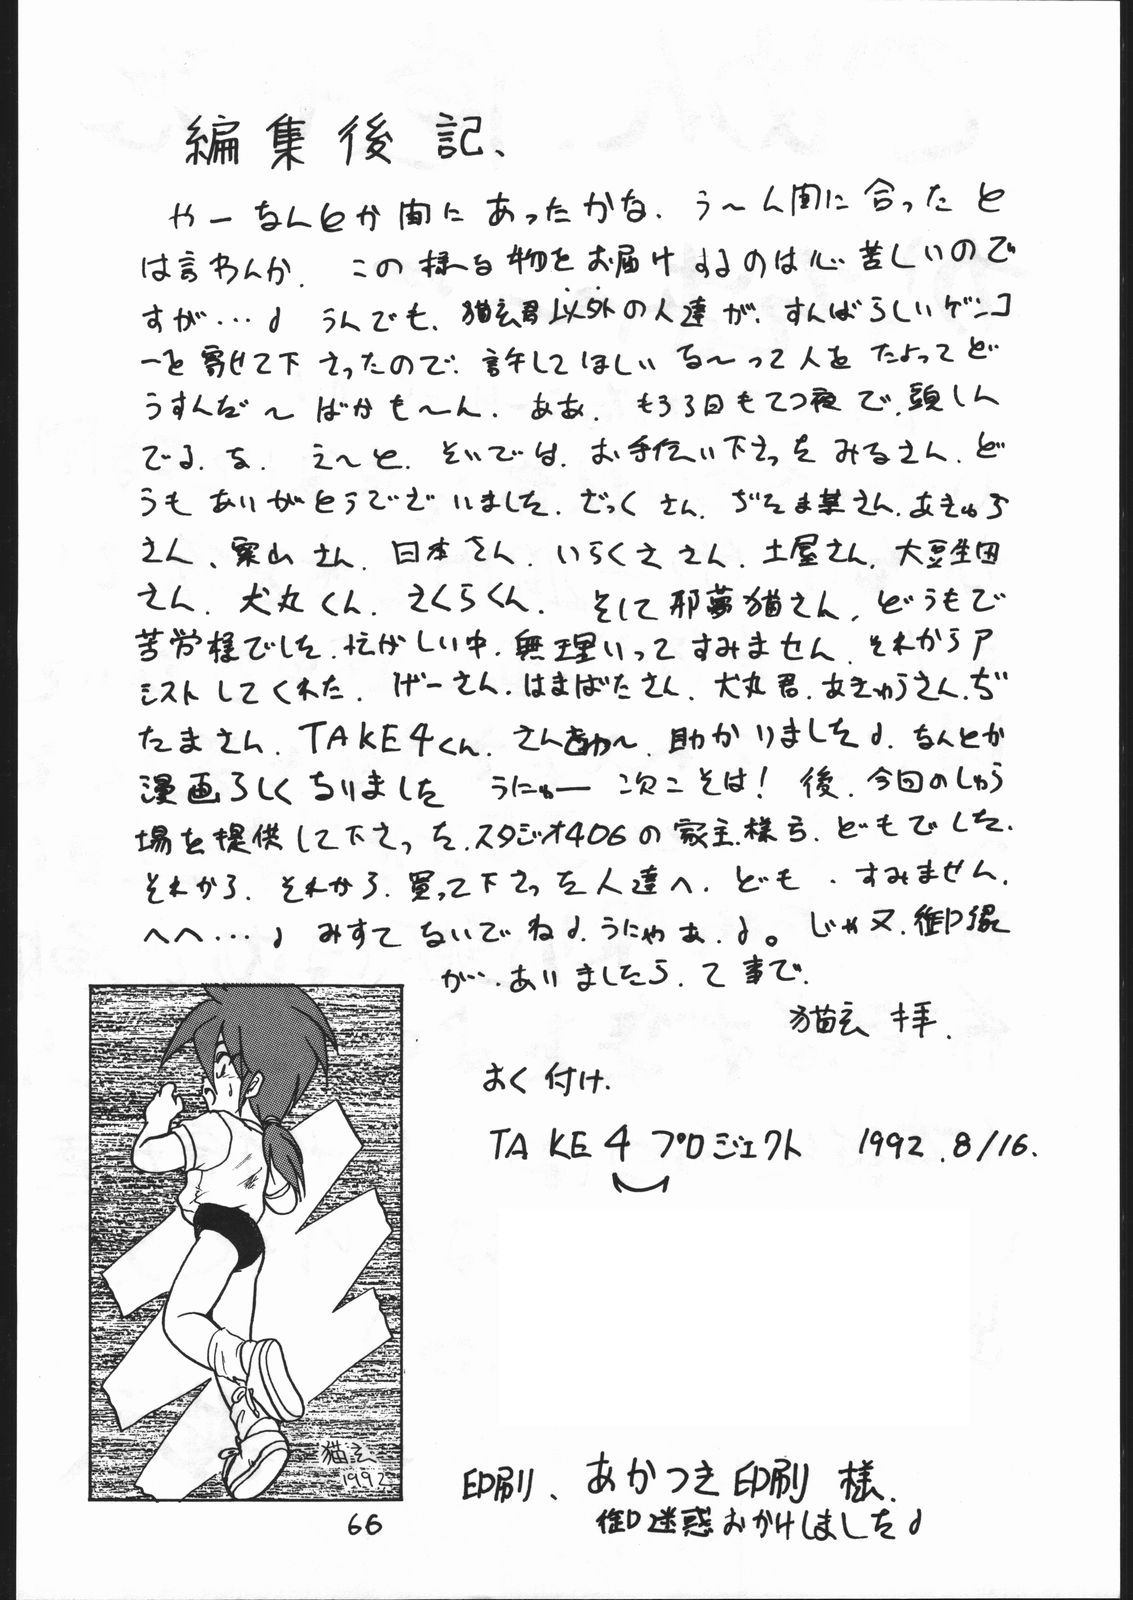 編集後記、
やーなんとか間にあったかな、う〜ん間に合ったと
は言わんか、この様な物をお届けするのは心苦しいので
すが…♩うんでも、猫玄君以外の人達が、すんばらしいゲンコ
ーを寄せて下さったので、許してほしいな〜って人をたよってど
うすんだ〜ばかも〜ん、ああ、もう3日もてつ夜で、頭しん
でる、な、え〜と、それでは、お手伝い下さったみるさん、ど
うもありがとうございました、ざっくさん、ぢたま某さん、あきゅう
さん、栗山さん、日本さん、いらくささん、土屋さん、大豆生田
さん、犬丸くん、さくらくん、そして邪夢猫さん、どうもご
苦労様でした、忙がしい中、無理いってすみません、それからア
シストしてくれた、げーさん、はまばたさん、犬丸君、あきゅうさん、ぢ
たまさん、TAKE4くん、さんきゅ〜、助かりました♩、なんとか
漫画らしくなりました うにゅー 次こそは！後、今回のしゅら
場を提供して下さった、スタジオ406の家主様方、どもでした、
それから、それから、買って下さった人達へ、ども、すみません、
へへ…♩みすてないでね♩、うにゃぁ、♩。じゃ又、御縁
が…ありましたら、て事で、
猫玄 拝、
おく付け、
TAKE4プロジェクト 1992.8/16.
猫玄
1992
印刷、あかつき印刷 様、
御迷惑おかけしました♩
66